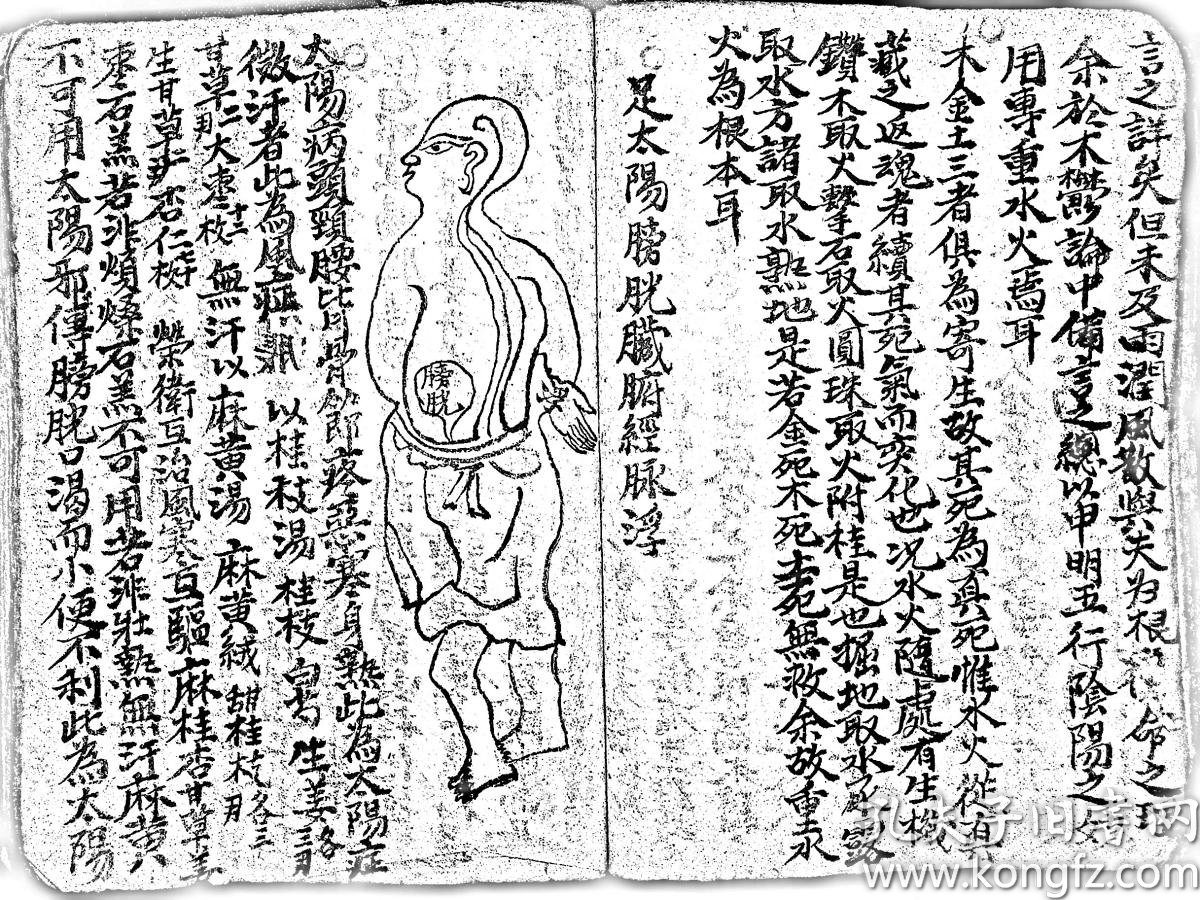 言之詳矣但未及雨潤風散與夫为根命之
余於木鬱論中備言之總以申明五行陰陽之
用專重水火焉耳
木金土三者俱為寄生故其死為真死惟水火從
藏之返魂者續其死氣而变化也况水火隨處有生機
鑽木取火擊石取火圓珠取火附桂是也掘地取水露
取水方諸取水熟地是若金死木死土死無救余故重水
火為根本耳
足太陽膀胱臟腑經脉浮
膀胱
太陽病頭頸腰骨疼惡寒身熱此為太陽症
微汗者此為風 以桂枝湯 桂枝 白芍 生姜各三
甘草二 大棗十二枚 無汗以麻黄湯 麻黄絨 桂枝各三
生甘草 杏仁 枚 榮衛互治風寒互驅麻桂杏甘草姜
棗石羔若非煩燥石羔不可用若非壯熱無汗麻黄
不可用太陽邪傳膀胱口渴而小便不利此為太陽
孔夫子旧书网
www.kongfz.com